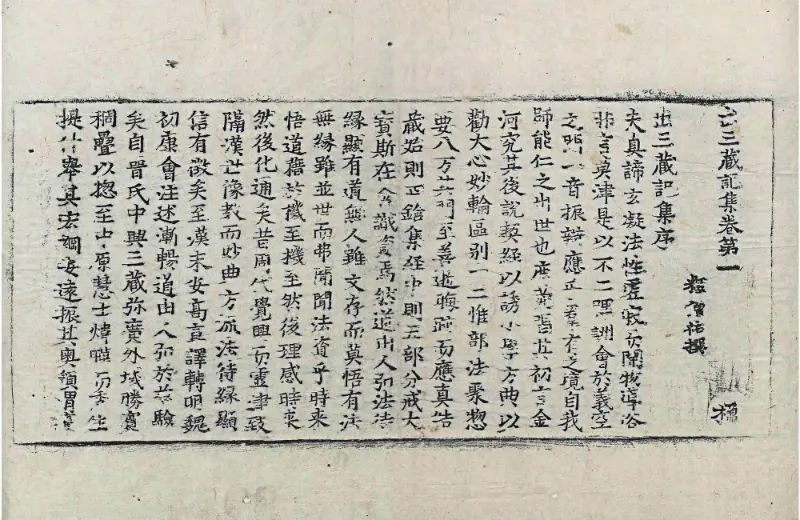 出三藏記集卷第一
釋僧祐撰
出三藏記集序
夫真諦玄凝法性虛寂而開物導俗
非言莫津是以不二默詶會於義空
之門一音振辯應乎群有之境自我
師能仁之出世也鹿苑唱其初言金
河究其後說契經以誘小學方典以
勸大心妙輪區別十二惟部法聚惣
要八万其門至善逝晦迹而應真結
藏始則四含集經中則五部分戒大
寶斯在含識資焉然道由人弘法待
緣顯有道無人雖文存而莫悟有法
無緣雖並世而弗聞聞法資乎時來
悟道藉於機至機至然後理感時來
然後化通矣昔周代覺興而靈津致
隔漢世像教而妙典方流法待緣顯
信有徵矣至漢末安高宣譯轉明魏
初康會注述漸暢道由人弘於茲驗
矣自晉氏中興三藏弥廣外域勝賓
稠疊以惣至中原慧士煒曄而秀生
提什舉其宏綱安遠振其奧領渭濱